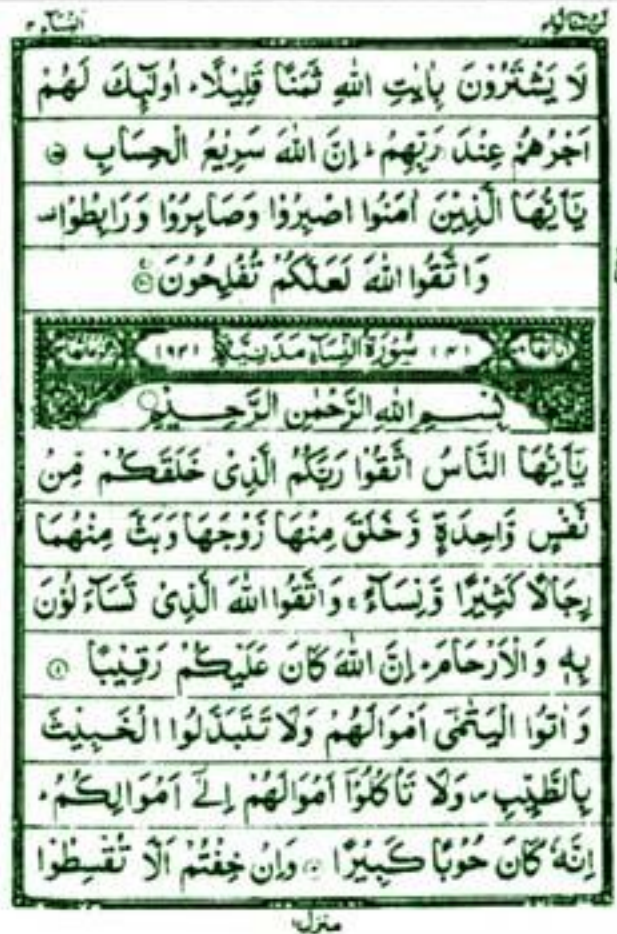 لن تنالوا ٤
النسآء ٤
لَا يَشْتَرُوْنَ بِاٰيٰتِ اللّٰهِ ثَمَنًا قَلِيْلًا ؕ اُولٰٓئِكَ لَهُمْ
اَجْرُهُمْ عِنْدَ رَبِّهِمْ ؕ اِنَّ اللّٰهَ سَرِيْعُ الْحِسَابِ
يٰٓاَيُّهَا الَّذِيْنَ اٰمَنُوا اصْبِرُوْا وَصَابِرُوْا وَرَابِطُوْا
وَاتَّقُوا اللّٰهَ لَعَلَّكُمْ تُفْلِحُوْنَ
(٤) سُوْرَةُ النِّسَآءِ مَدَنِيَّةٌ (٩٢)
بِسْمِ اللّٰهِ الرَّحْمٰنِ الرَّحِيْمِ
يٰٓاَيُّهَا النَّاسُ اتَّقُوْا رَبَّكُمُ الَّذِيْ خَلَقَكُمْ مِّنْ
نَّفْسٍ وَّاحِدَةٍ وَّخَلَقَ مِنْهَا زَوْجَهَا وَبَثَّ مِنْهُمَا
رِجَالًا كَثِيْرًا وَّنِسَآءً ۚ وَاتَّقُوا اللّٰهَ الَّذِيْ تَسَآءَلُوْنَ
بِهٖ وَالْاَرْحَامَ ؕ اِنَّ اللّٰهَ كَانَ عَلَيْكُمْ رَقِيْبًا ١
وَاٰتُوا الْيَتٰمٰٓى اَمْوَالَهُمْ وَلَا تَتَبَدَّلُوا الْخَبِيْثَ
بِالطَّيِّبِ ۪ وَلَا تَاْكُلُوْٓا اَمْوَالَهُمْ اِلٰٓى اَمْوَالِكُمْ ؕ
اِنَّهٗ كَانَ حُوْبًا كَبِيْرًا ٢ وَاِنْ خِفْتُمْ اَلَّا تُقْسِطُوْا
منزل ١